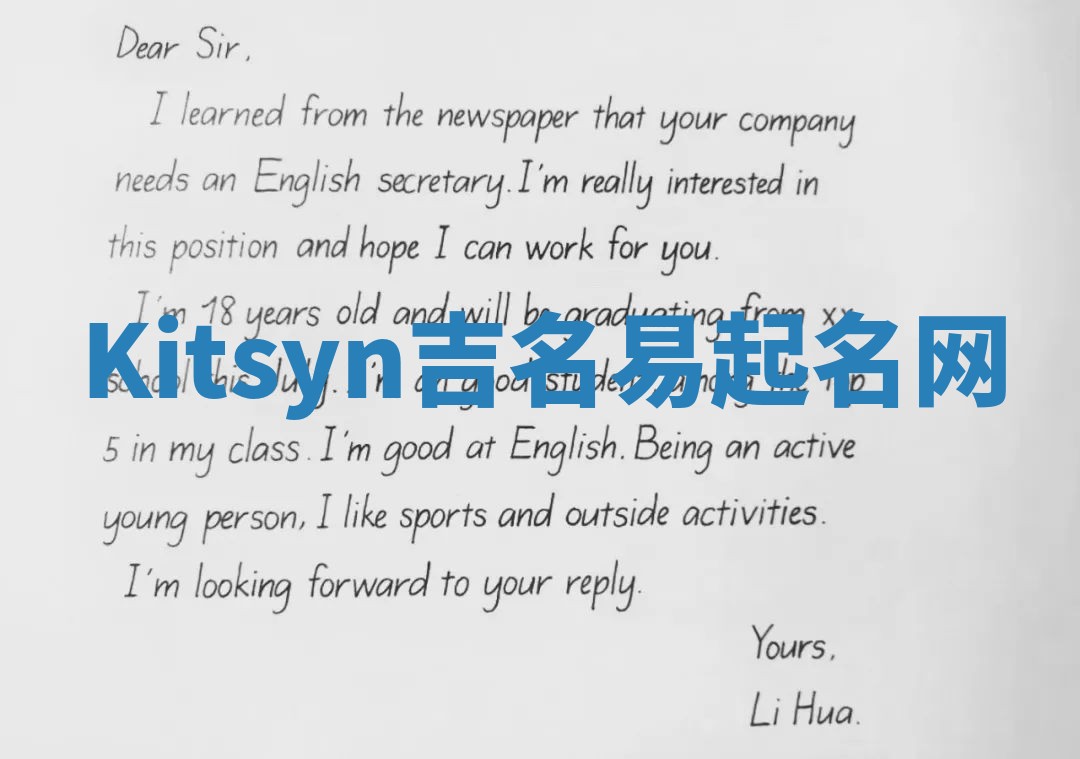 Dear Sir,
I learned from the newspaper that your company
needs an English secretary. I'm really interested in
this position and hope I can work for you.
I'm 18 years old and will be graduating from xx
Kitsyn吉名易起名网
school this July. I'm good student among the top
5 in my class. I'm good at English. Being an active
young person, I like sports and outside activities.
I'm looking forward to your reply.
Yours,
Li Hua.